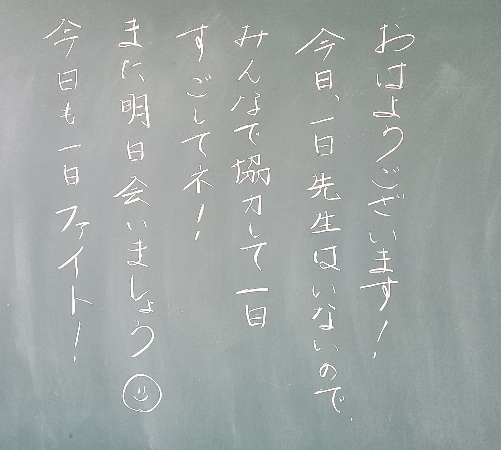 おはようございます!
今日、一日先生はいないので、
みんなで協力して一日
すごしてネ!
また明日会いましょう
今日も一日ファイト!